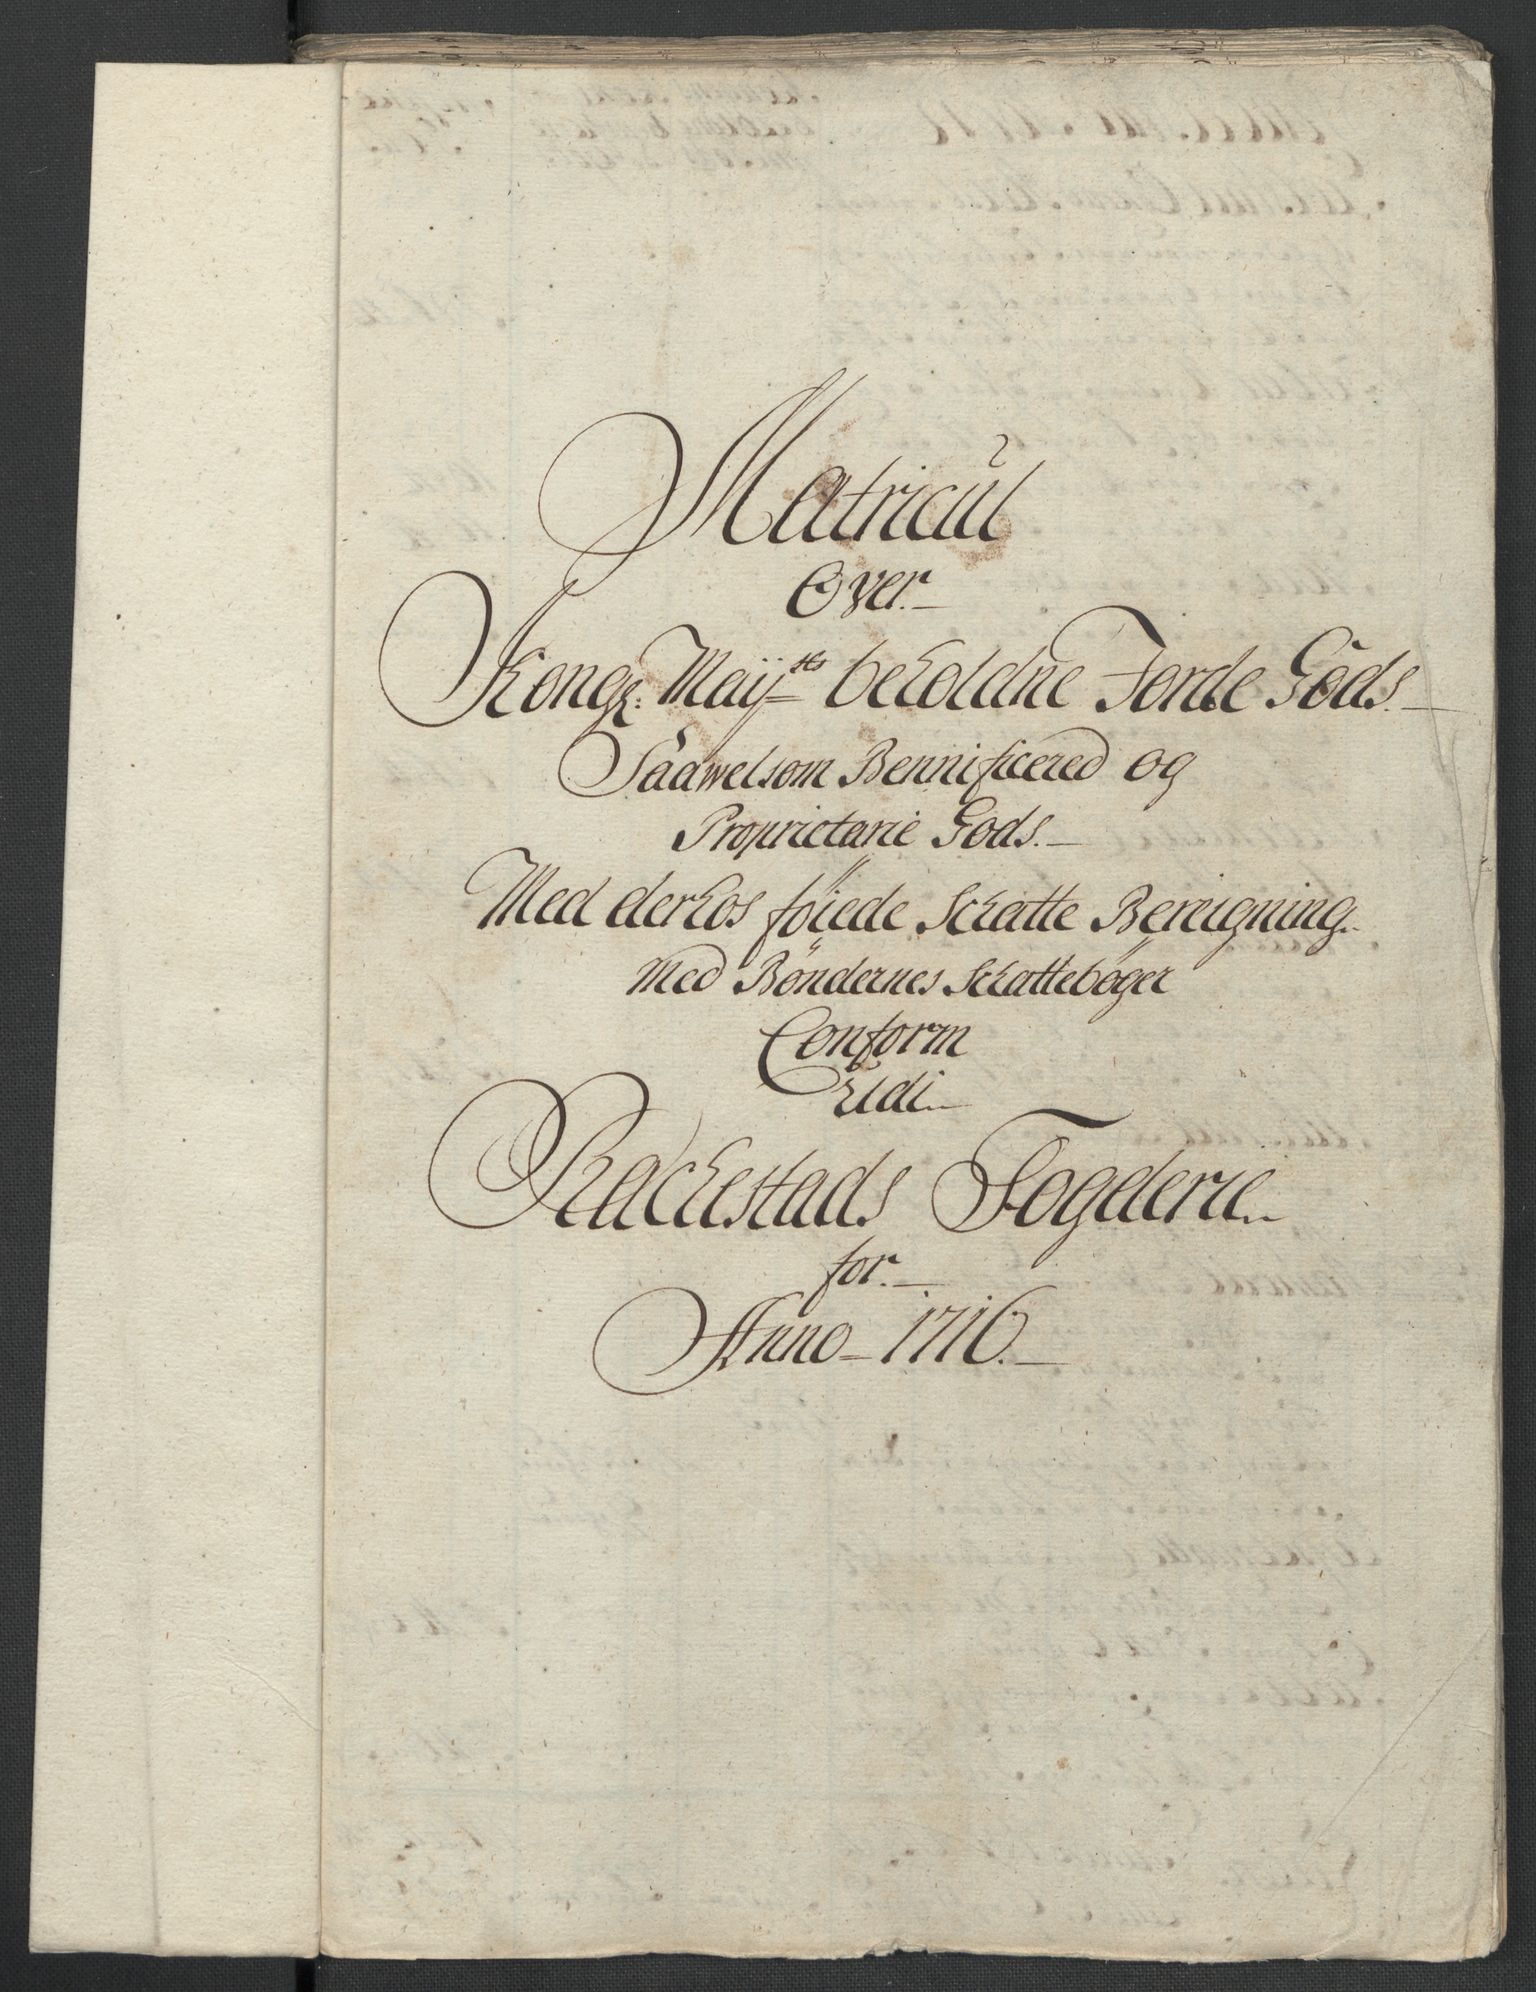 Matricul
Over.
Kongl: Maij:ts beholdne Jorde Gods.
Saawelsom Bennificered og
Proprietarie Gods.
Med derhos föiede Schatte Bereigning.
Med Böndernes Schatteböger
Conform
Udi
Rackestads Fogderie
for.
Anno 1716.